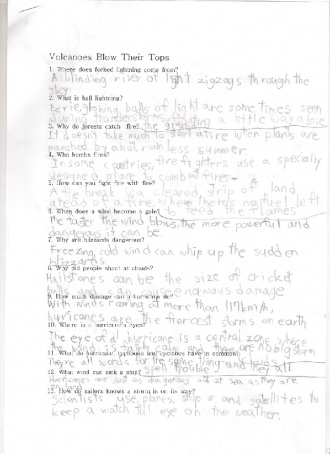 Volcanoes Blow Their Tops
1. Where does forked lightning come from?
A blinding river of light zigzags through the
sky
2. What is ball lightning?
Eerie, glowing balls of light are sometimes seen
during thunderstorms, the a little way above
3. Why do forests catch fire?
It doesn't take much to start a fire when plants are
parched by a hot, rainless summer
4. Who bombs fires?
In some countries, firefighters use a specially
designed plane to combat fires
5. How can you fight fire with fire?
A fire break is a cleared strip of land
ahead of a fire, where there's no fuel left
to feed the flames
6. When does a wind become a gale?
The faster the wind blows, the more powerful and
dangerous it can be.
7. Why are blizzards dangerous?
Freezing cold wind can whip up the sudden
blizzards
8. Why did people shoot at clouds?
Hailstones can be the size of cricket
balls and can cause enormous damage
9. How much damage can a hurricane do?
With winds roaring at more than 117km/h,
hurricanes are the fiercest storms on earth
10. Where is a hurricane's eye?
The eye of a hurricane is a central zone where
the wind is calm and there are no big storm
11. What do hurricanes, typhoons and cyclones have in common?
They're all words for the same thing and
spell trouble they all
12. What wind can sink a ship?
Hurricanes are just as dangerous out at sea as they are
on land
13. How do sailors know a storm is on its way?
Scientists use planes, ships and satellites to
keep a watchful eye on the weather